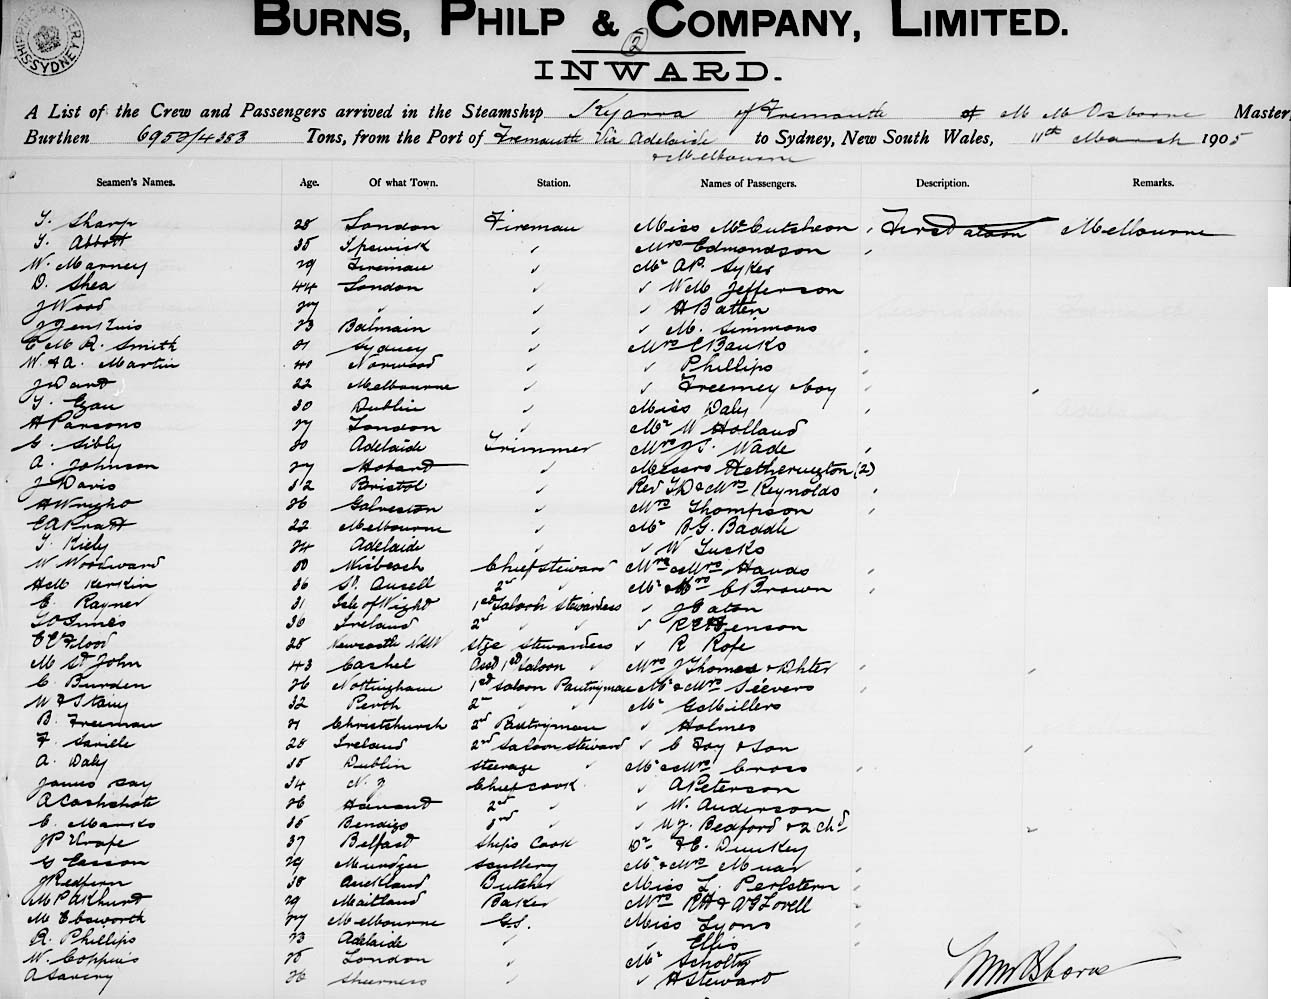 BURNS, PHILP & COMPANY, LIMITED.
2
INWARD.
SYDNEY
A List of the Crew and Passengers arrived in the Steamship Kyarra of Fremantle M M Osborne Master,
Burthen 6953/4383 Tons, from the Port of Fremantle Via Adelaide to Sydney, New South Wales, 11th March 1905
& Melbourne
Seamen's Names. Age. Of what Town. Station. Names of Passengers. Description. Remarks.
T. Sharp 28 London Fireman Miss McCutcheon First Saloon Melbourne
T. Abbott 35 Ipswick " Mrs Edmondson "
W. Marney 29 Fireman " Mr A.P. Sykes
D. Shea 44 London " " W M Jefferson
J Wood 27 " " " H Batten
23 Balmain " " M. Simmons
C M R. Smith 21 Sydney " Mrs C Banks "
W. & A. Martin 40 Norwood " " Phillips "
J Dant 22 Melbourne " " Freemey boy " "
T. Egan 30 Dublin " Miss Daly "
H Parsons 27 London " Mr W Holland
G. Sibly 30 Adelaide Trimmer Mrs J.S. Wade "
A. Johnson 27 Hobart " Messrs Hetherington (2)
J Davis 32 Bristol " Rev T.D & Mrs Reynolds "
H Wright 26 Galveston " Mrs Thompson "
E A Pratt 22 Melbourne " Mr B.G. Baddle
T. Kiely 24 Adelaide " " W Tucks
W Woodward 50 Wisbeach Chief steward Mr & Mrs Hands "
H M Kerkin 36 St. Ausell 2nd " Mr & Mrs C Brown "
C. Rayner 31 Isle of Wight 1st Saloon Stewardess " J Eaton
30 Ireland 2nd " " " Benson
Flood 28 Newcastle NSW Stge stewardess " R Rofe
M St John 43 Cashel Asst 1st Saloon " Mrs J Thomas & Dhter " "
C. Burden 26 Nottingham 1st Saloon Pantryman Mr & Mrs Sievers "
32 Perth 2nd " " Mr G Millers
B. Freeman 21 Christchurch 2nd Pantryman " Holmes
F. Saville 28 Ireland 2nd Saloon Steward " C Foy & Son "
A. Daly 35 Dublin Steerage " Mr & Mrs Cross "
James Day 34 N. Z Chief Cook " A Peterson
A Cashshott 26 Havant 2nd " " W. Anderson
C. Manks 35 Bendigo 3rd " " W J. Bedford & 2 Chd "
37 Belfast Ships Cook Dr F.C. Dunkey
G Easson 29 Mundgee Scullery Mr & Mrs Muar "
J Redfern 38 Auckland Butcher Miss L. Perlstern "
M Pakhurst 29 Maitland Baker Mrs R H & A G Lovell "
M Ebsworth 27 Melbourne G.S. Miss Lyons "
R. Phillips 23 Adelaide " " Ellis "
W. Coppins 28 London " Mr Scholtz
A Savery 26 Sheerness " " H Steward
M M Osborne